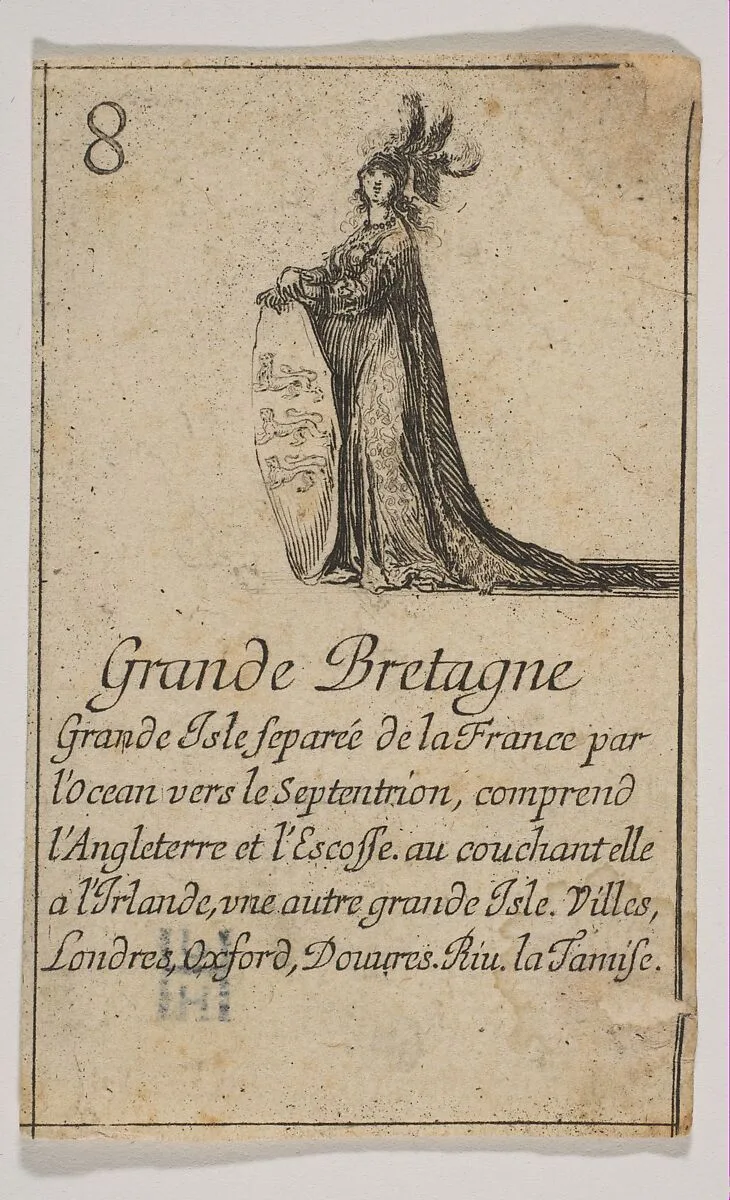 8
Grande Bretagne
Grande Isle ſepareé de la France par
l'Ocean vers le Septentrion, comprend
l'Angleterre et l'Escoſſe. au couchant elle
a l'Irlande, vne autre grande Isle. Villes,
Londres, Oxford, Douures. Riu. la Tamiſe.